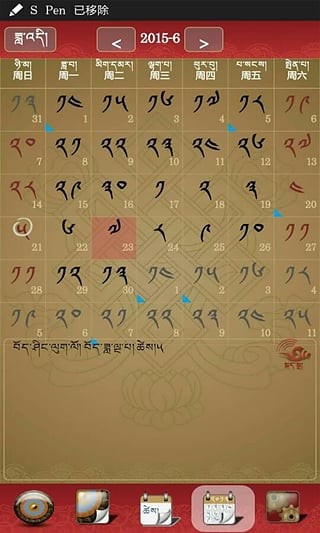 S Pen 已移除
ཟླ་འདི། < 2015-6 >
ཉི་མ། ཟླ་བ། མིག་དམར། ལྷག་པ། ཕུར་བུ། པ་སངས། སྤེན་པ།
周日 周一 周二 周三 周四 周五 周六
༡༣ ༡༤ ༡༥ ༡༦ ༡༧ ༡༨ ༡༩
31 1 2 3 4 5 6
༢༠ ༢༡ ༢༢ ༢༣ ༢༤ ༢༦ ༢༧
7 8 9 10 11 12 13
༢༨ ༢༩ ༣༠ ༡ ༢ ༣ ༤
14 15 16 17 18 19 20
༥ ༦ ༧ ༨ ༩ ༡༠ ༡༡
21 22 23 24 25 26 27
༡༡ ༡༢ ༡༣ ༡༤ ༡༥ ༡༦ ༡༨
28 29 30 1 2 3 4
༡༩ ༢༠ ༢༡ ༢༢ ༢༣ ༢༤ ༢༥
5 6 7 8 9 10 11
བོད་ཤིང་ལུག་ལོ། བོད་ཟླ་ལྔ་པ་ཚེས།༥
ཚེས།